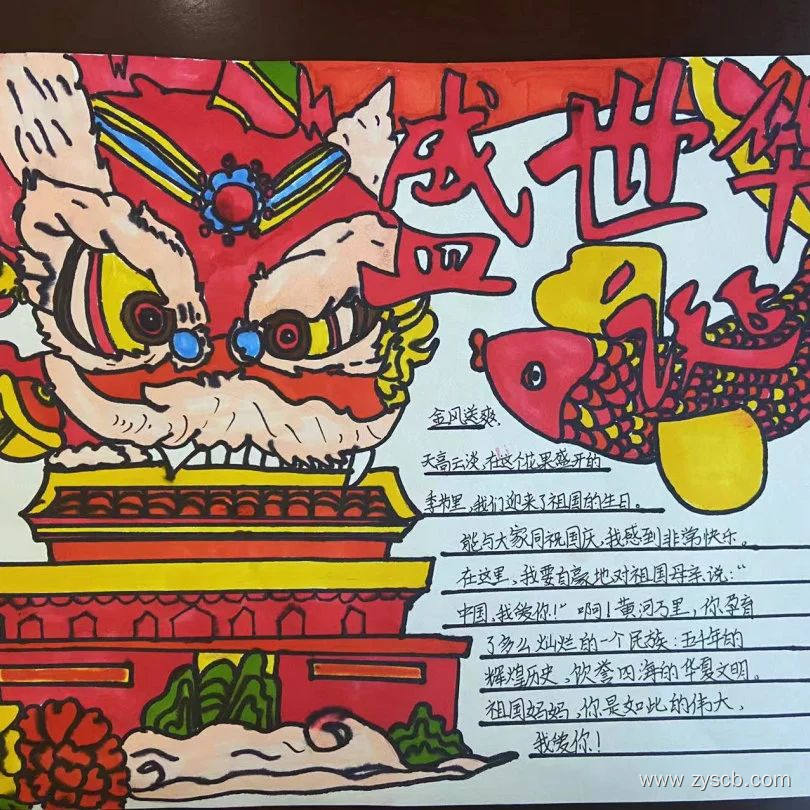 盛世华诞
金风送爽，
天高云淡，在这个花果盛开的
季节里，我们迎来了祖国的生日。
能与大家同祝国庆，我感到非常快乐。
在这里，我要自豪地对祖国母亲说："
中国，我爱你！"啊！黄河万里，你孕育
了多么灿烂的一个民族：五千年的
辉煌历史，饮誉四海的华夏文明。
祖国妈妈，你是如此的伟大，
我爱你！
www.zyscb.com